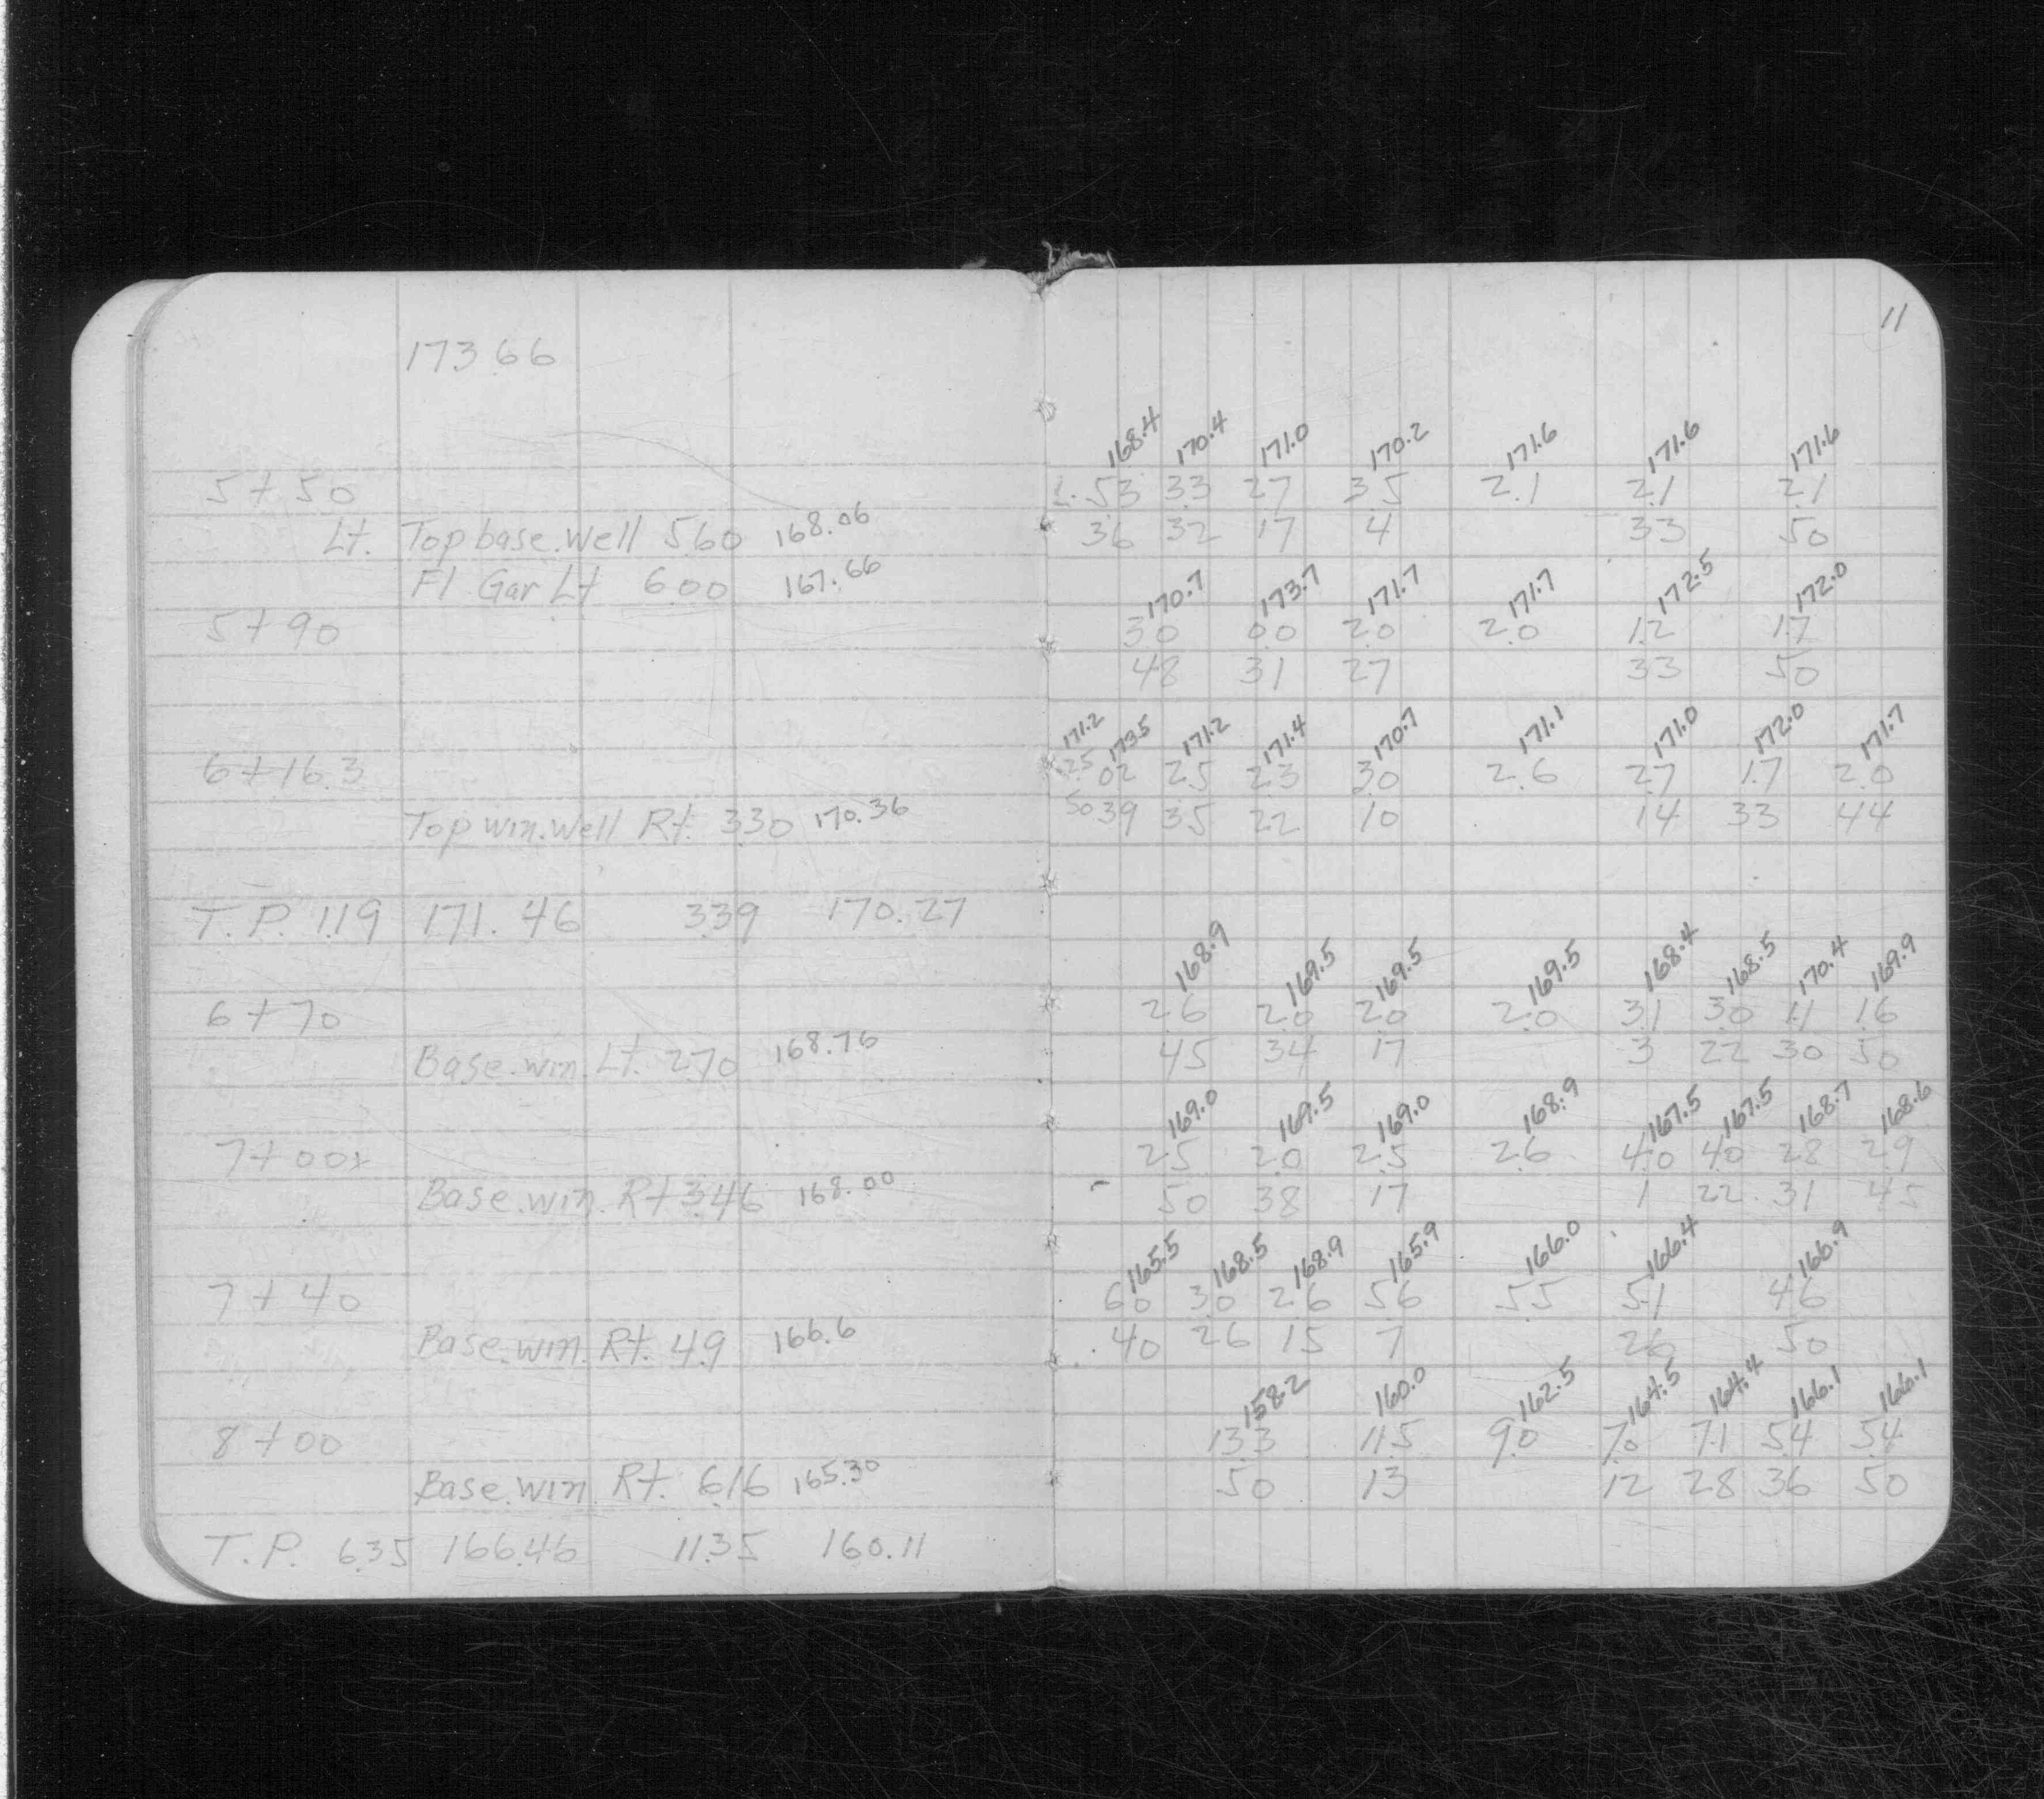 11
173.66
168.4 170.4 171.0 170.2 171.6 171.6 171.6
5+50 5.3 3.3 2.7 3.5 2.1 2.1 2.1
Lt. Top base.well 5.60 168.06 36 32 17 4 33 50
Fl. Gar Lt 6.00 167.66
170.7 173.7 171.7 171.7 172.5 172.0
5+90 3.0 0.0 2.0 2.0 1.2 1.7
48 31 27 33 50
171.2 173.5 171.2 171.4 170.7 171.1 171.0 172.0 171.7
6+16.3 2.5 0.2 2.5 2.3 3.0 2.6 2.7 1.7 2.0
Top win.well Rt. 3.30 170.36 50 39 35 22 10 14 33 44
T.P. 1.19 171.46 3.39 170.27
168.9 169.5 169.5 169.5 168.4 168.5 170.4 169.9
6+70 2.6 2.0 2.0 2.0 3.1 3.0 1.1 1.6
Base.win. Lt. 2.70 168.76 45 34 17 3 22 30 50
169.0 169.5 169.0 168.9 167.5 167.5 168.7 168.6
7+00± 2.5 2.0 2.5 2.6 4.0 4.0 2.8 2.9
Base.win. Rt 3.46 168.00 50 38 17 1 22 31 45
165.5 168.5 168.9 165.9 166.0 166.4 166.9
7+40 6.0 3.0 2.6 5.6 5.5 5.1 4.6
Base.win. Rt. 4.9 166.6 40 26 15 7 26 50
158.2 160.0 162.5 164.5 164.4 166.1 166.1
8+00 13.3 11.5 9.0 7.0 7.1 5.4 5.4
Base.win. Rt. 6.16 165.30 50 13 12 28 36 50
T.P. 6.35 166.46 11.35 160.11